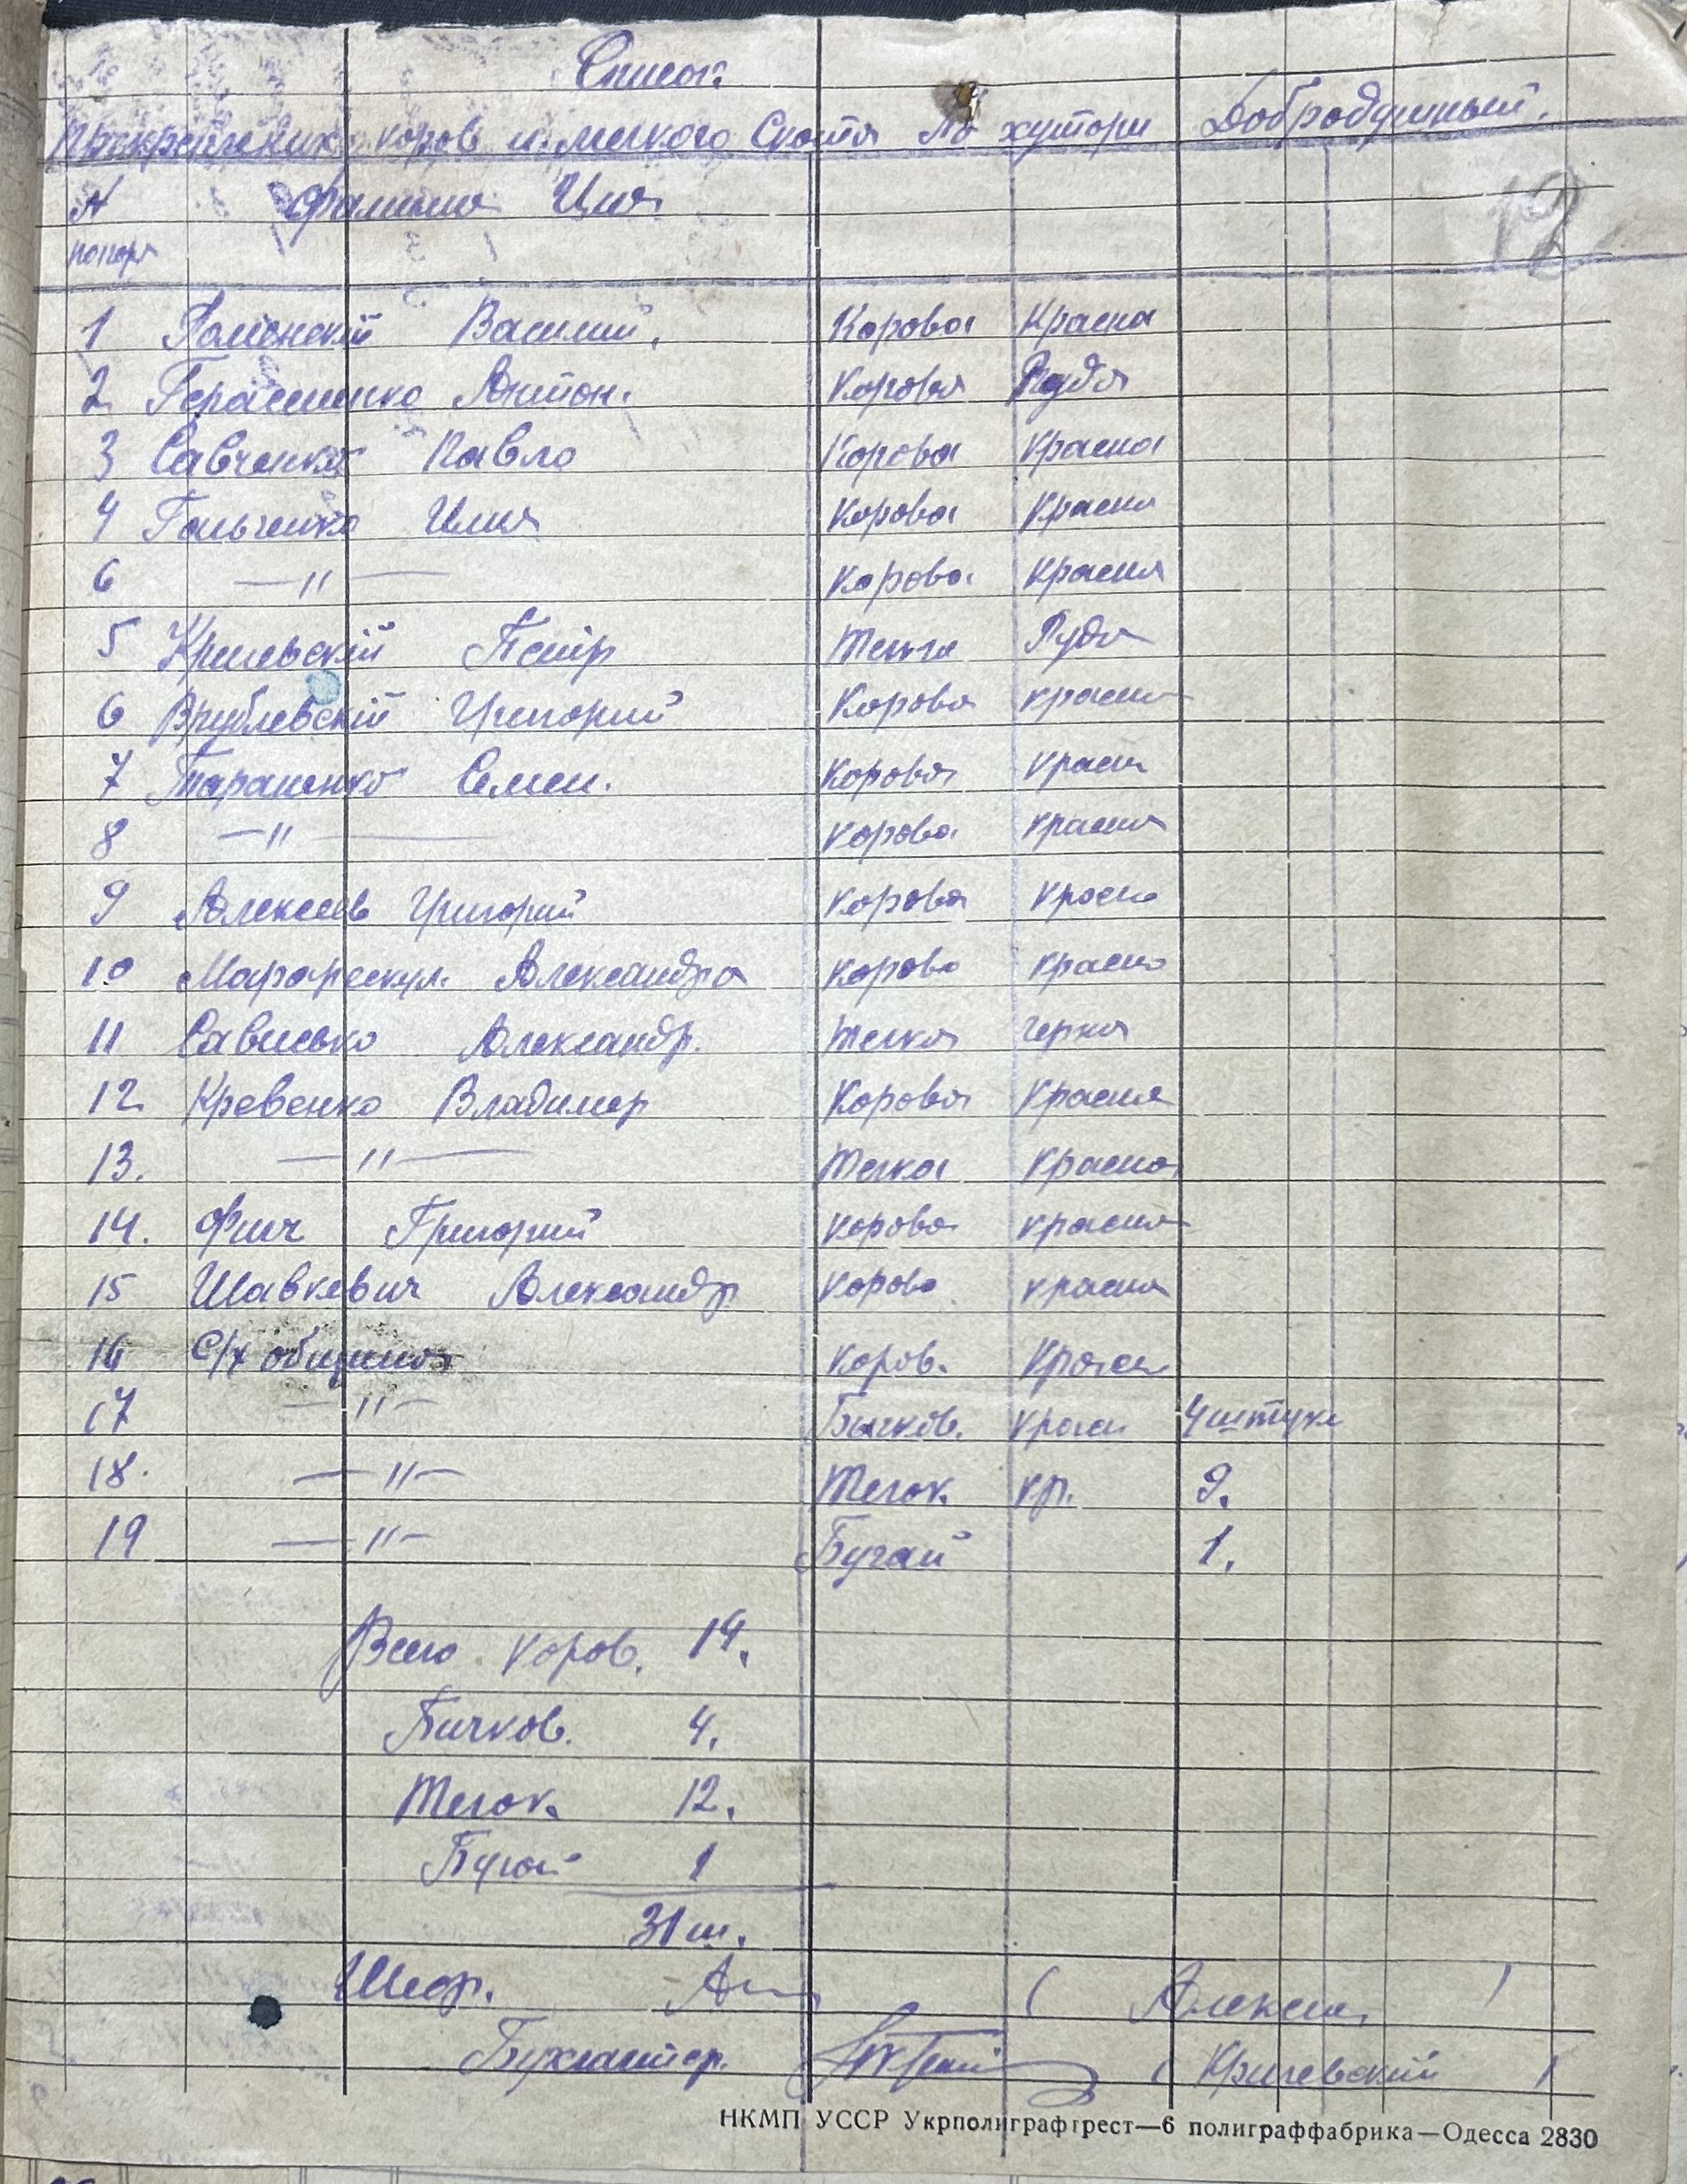 Список
прикрепленних коров и мелкого Скота по хутори Добродушный.
12
N Фамилие Имя
попор
1 Роменскій Василий. Корова Красна
2 Герасименко Антон. Корова Руда
3 Савченко Павло Корова Красна
4 Гальченко Илия Корова Красна
6 —"— Корова Красня
5 Кричевскій Петр Телка Руда
6 Врублевскій Григорий Корова красна
7 Тараненко Семен. Корова красн
8 —"— Корова красня
9 Алексеев Григорий Корова красна
10 Александра Корова красна
11 Сависько Александр. Телка черна
12 Кревенко Владимер Корова Красня
13. —"— Телка Красна
14. Фич Григорий Корова красня
15 Шавкевич Александр Корова красня
16 С/х община Коров. Красн
17 —"— Бычков. красн 4 штуки
18. —"— Телок. кр. 9.
19 —"— Бугай 1.
Всего коров. 14.
Бичков. 4.
Телок. 12.
Бугай 1
31 ш.
( Алексеев )
Бухгалтер. ( Кричевский )
НКМП УССР Укрполиграфтрест—6 полиграффабрика—Одесса 2830